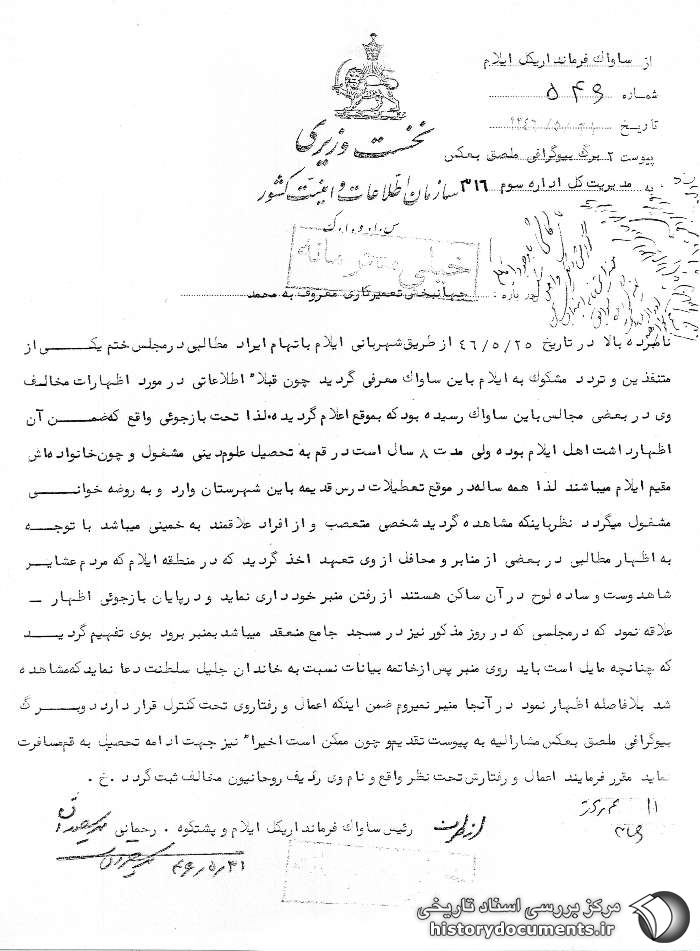 از ساواک فرمانداریکل ایلام
شماره ۵۴۶
تاریخ
پیوست ۲ برگ بیوگرافی ملصق بعکس
به مدیریت کل اداره سوم ۳۱۶
نخست وزیری
سازمان اطلاعات و امنیت کشور
س.ا.و.ا.ک
خیلی محرمانه
در باره : جهانبخش تعمیرکاری معروف به محمد
نامبرده بالا در تاریخ ۴۶/۵/۲۵ از طریق شهربانی ایلام باتهام ایراد مطالبی در مجلس ختم یکی از
متنفذین و تردد مشکوک به ایلام باین ساواک معرفی گردید چون قبلاً اطلاعاتی در مورد اظهارات مخالف
وی در بعضی مجالس باین ساواک رسیده بود که بموقع اعلام گردیده، لذا تحت بازجوئی واقع که ضمن آن
اظهارداشت اهل ایلام بوده ولی مدت ۸ سال است در قم به تحصیل علوم دینی مشغول و چون خانواده اش
مقیم ایلام میباشند لذا همه ساله در موقع تعطیلات درس قدیمه باین شهرستان وارد و به روضه خوانی
مشغول میگردد نظرباینکه مشاهده گردید شخصی متعصب و از افراد علاقمند به خمینی میباشد با توجه
به اظهار مطالبی در بعضی از منابر و محافل از وی تعهد اخذ گردید که در منطقه ایلام که مردم عشایر
شاهدوست و ساده لوح در آن ساکن هستند از رفتن منبر خودداری نماید و در پایان بازجوئی اظهار ـ
علاقه نمود که در مجلسی که در روز مذکور نیز در مسجد جامع منعقد میباشد بمنبر برود بوی تفهیم گردید
که چنانچه مایل است باید روی منبر پس از خاتمه بیانات نسبت به خاندان جلیل سلطنت دعا نماید که مشاهده
شد بلافاصله اظهار نمود در آنجا منبر نمیروم ضمن اینکه اعمال و رفتاروی تحت کنترل قرار دارد دوبرگ
بیوگرافی ملصق بعکس مشارالیه به پیوست تقدیم و چون ممکن است اخیراً نیز جهت ادامه تحصیل به قم مسافرت
نماید مقرر فرمایند اعمال و رفتارش تحت نظر واقع و نام وی ردیف روحانیون مخالف ثبت گردد. خ.
رئیس ساواک فرمانداریکل ایلام و پشتکوه . رحمانی
از طرف
۴۶/۵/۳۱
مرکز بررسی اسناد تاریخی
historydocuments.ir